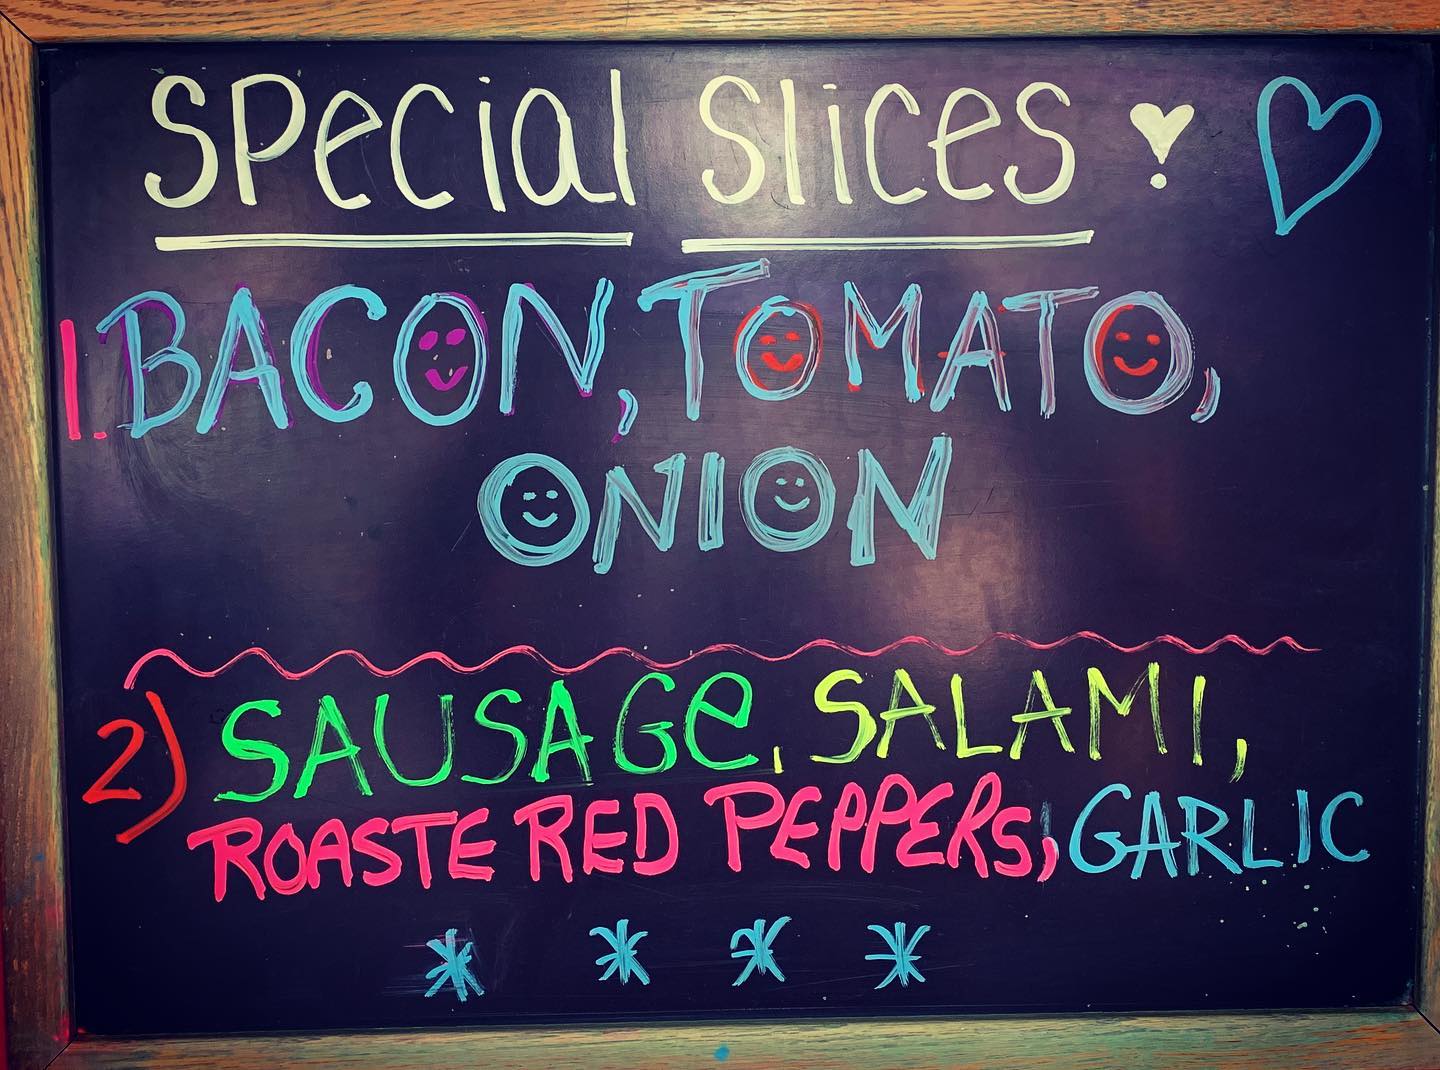 Special Slices !
1. BACON, TOMATO,
ONION
2) SAUSAGe, SALAMI,
ROASTE RED PEPPERS, GARLIC
* * * *